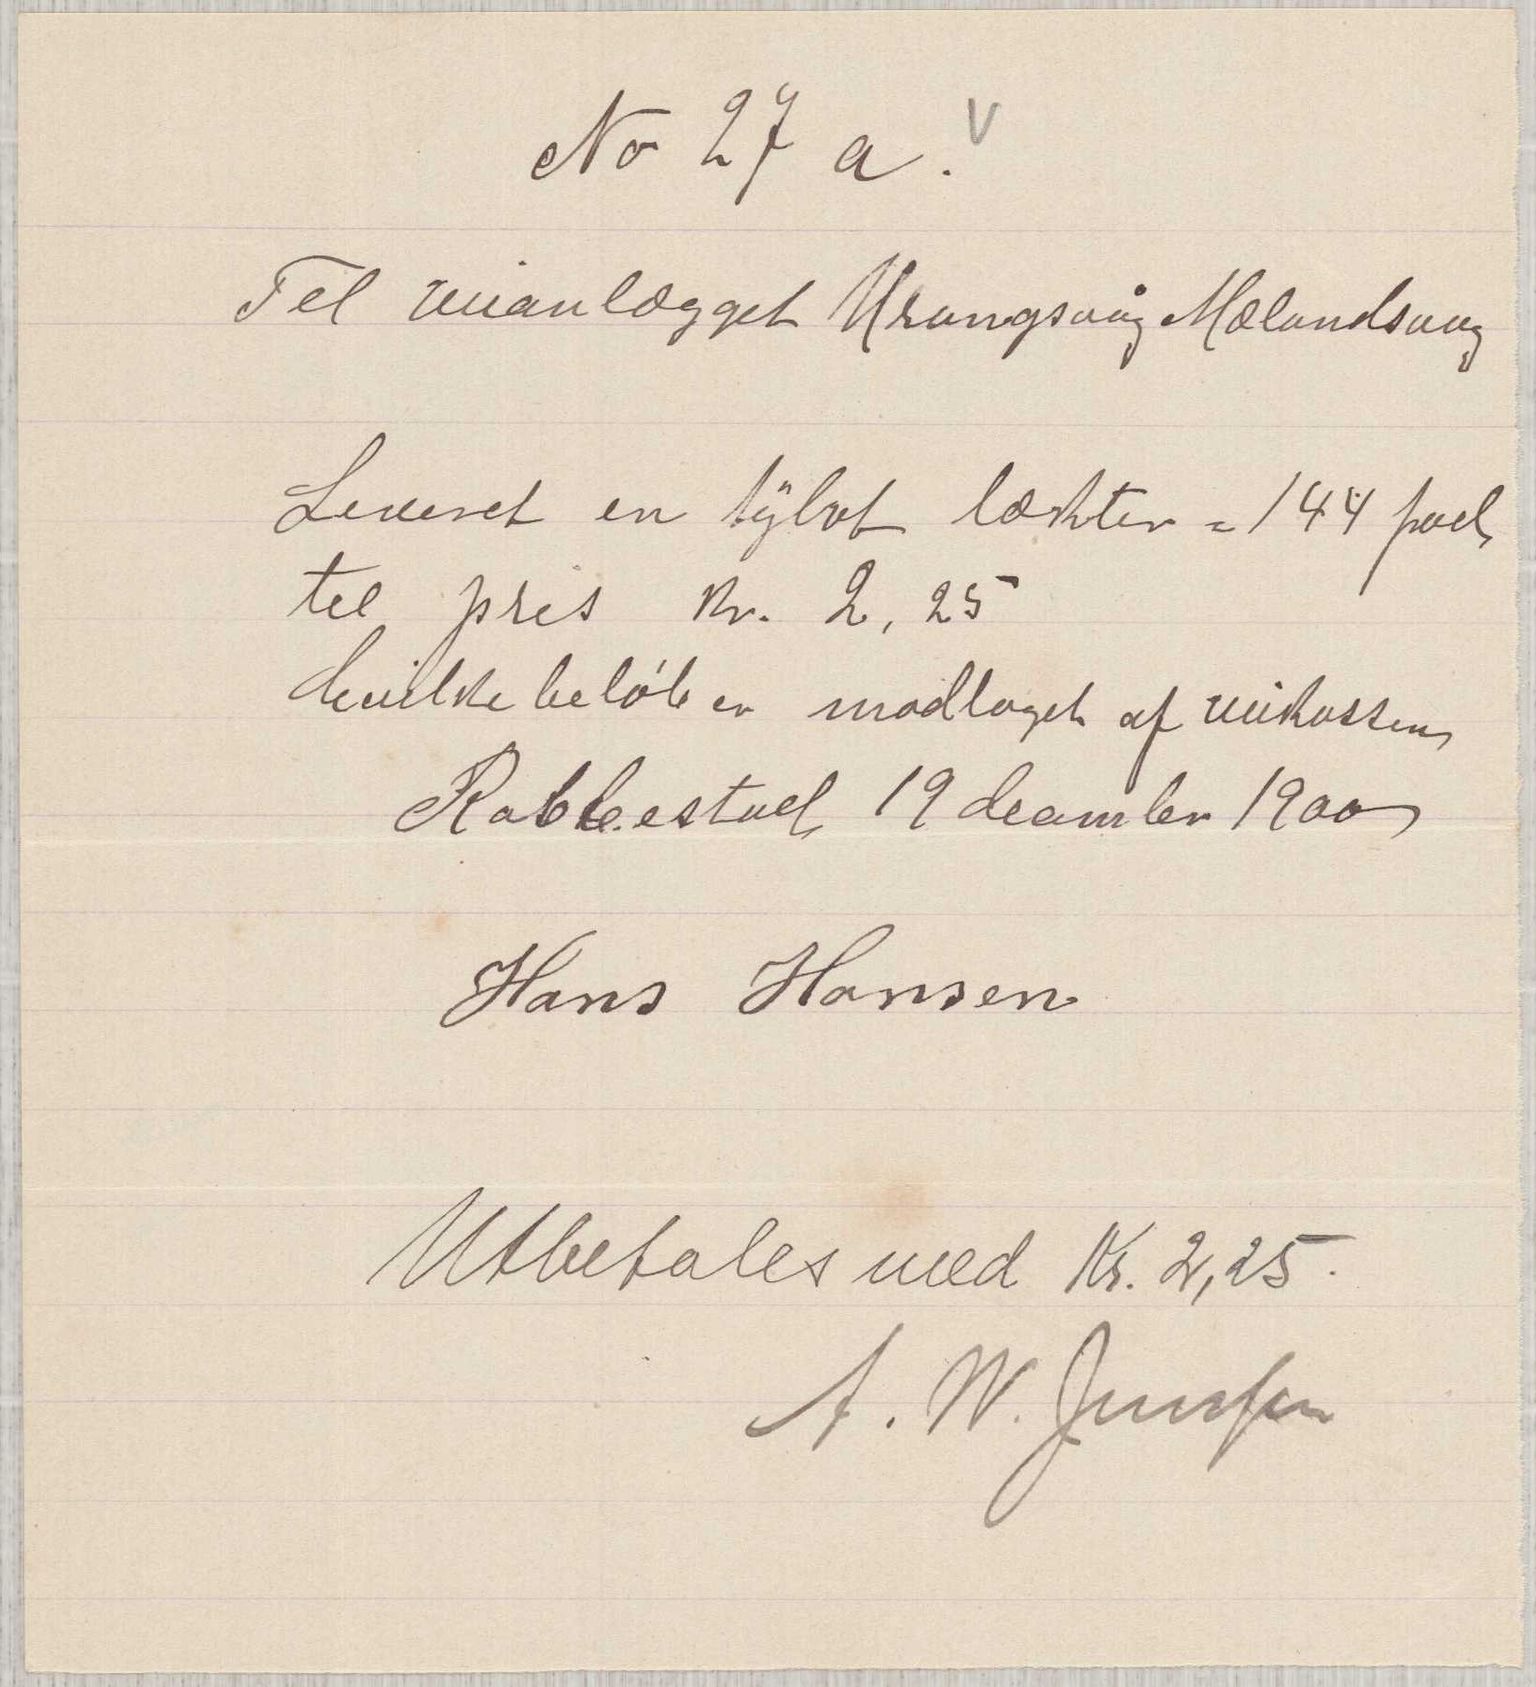 No 27 a. V
Tel veianlægget Urangsvåg Mælandsvag
Leveret en tÿlvt lækter = 144 fod,
tel pris kr. 2,25
hvilke beløb er modtaget af veikassen,
Rabbestad, 19 deember 1900
Hans Hansen
Utbetales med Kr. 2,25.
A. W. Jensen